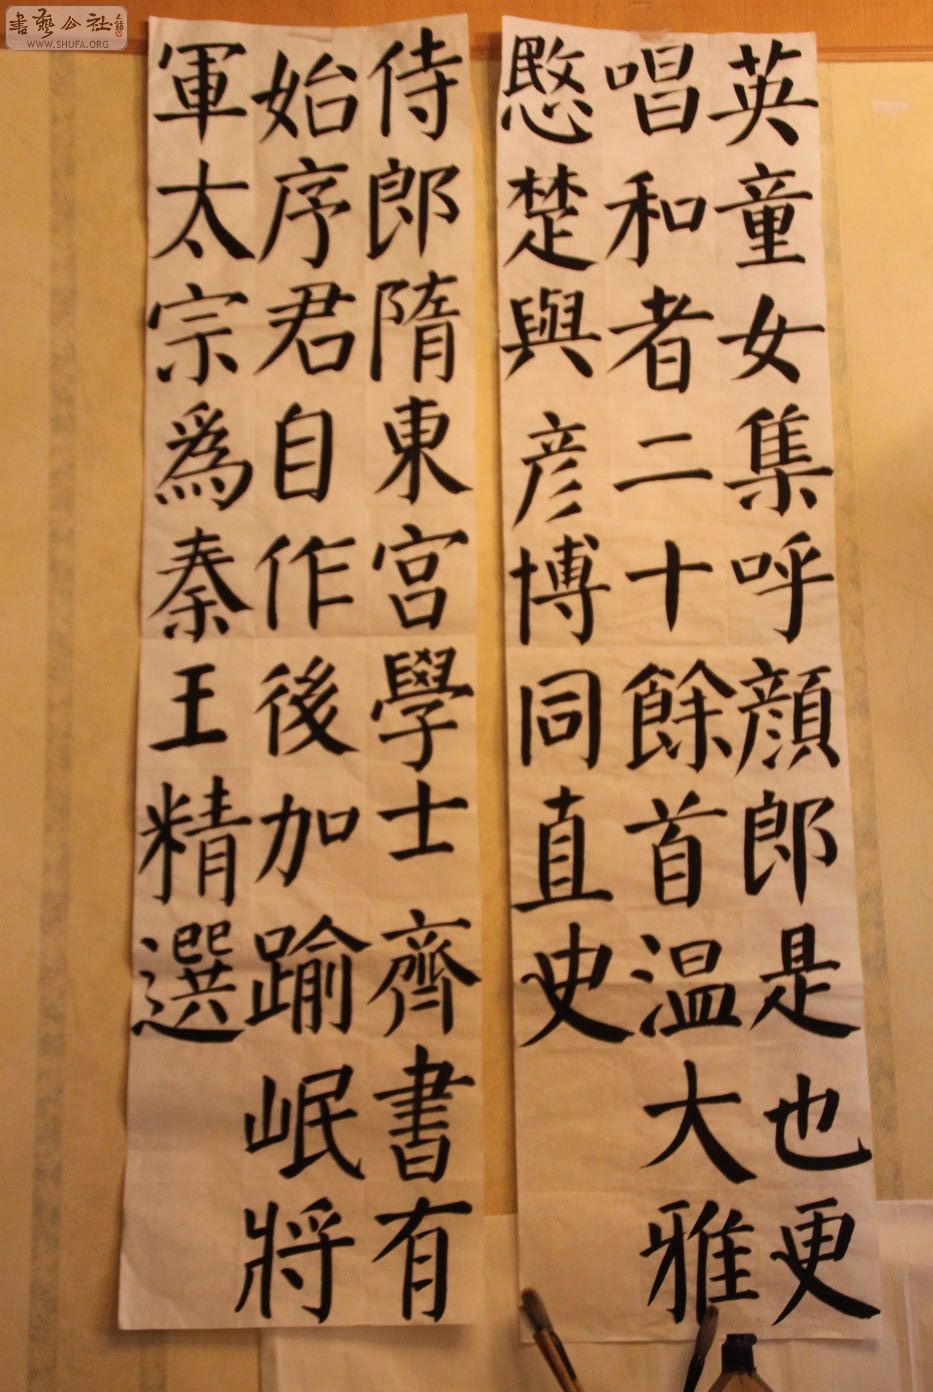 英童女集呼顔郎是也更
唱和者二十餘首温大雅
愍楚與彦博同直史
侍郎隋東宮學士齊書有
始序君自作後加踰岷將
軍太宗爲秦王精選
書藝公社
WWW.SHUFA.ORG